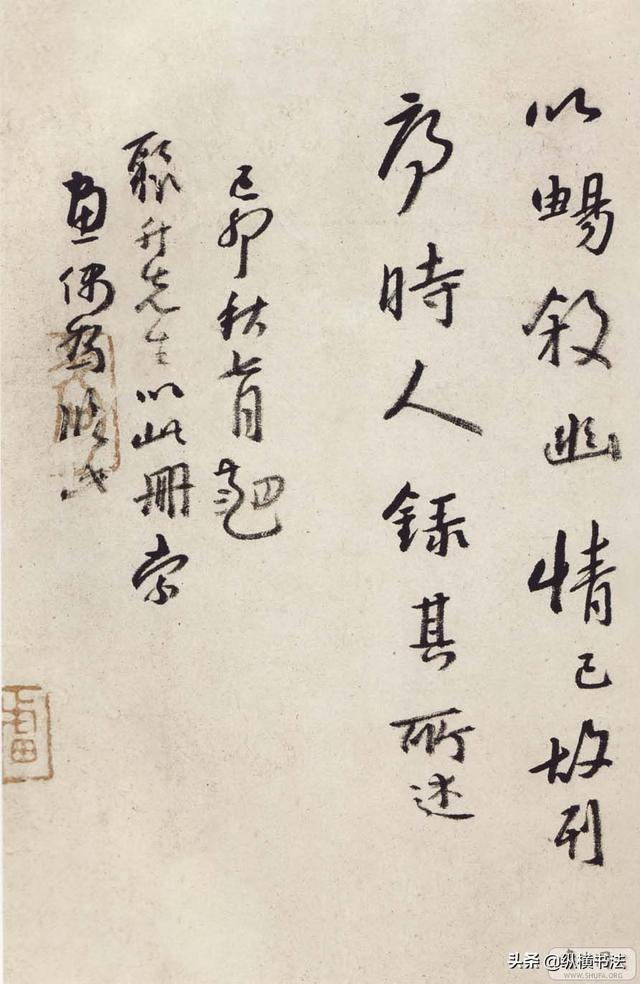 以暢敘幽情已故列
序時人錄其所述
己卯秋七月
升先生以此冊索
畫偶為臨
头条 @纵横书法
WWW.SHUFA.ORG